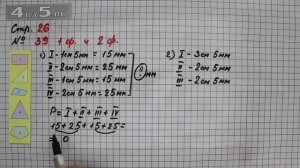 4АБ5.RU
Стр. 26
№ 39 1 ф. и 2 ф.
1) I - 1 см 5 мм = 15 мм
II - 2 см 5 мм = 25 мм
III - 1 см 5 мм = 15 мм
IV - 2 см 5 мм = 25 мм
? мм
P = I + II + III + IV
15 + 25 + 15 + 25 =
= 0
2) I - 3 см 5 мм
II - 2 см 5 мм
III - 2 см 5 мм